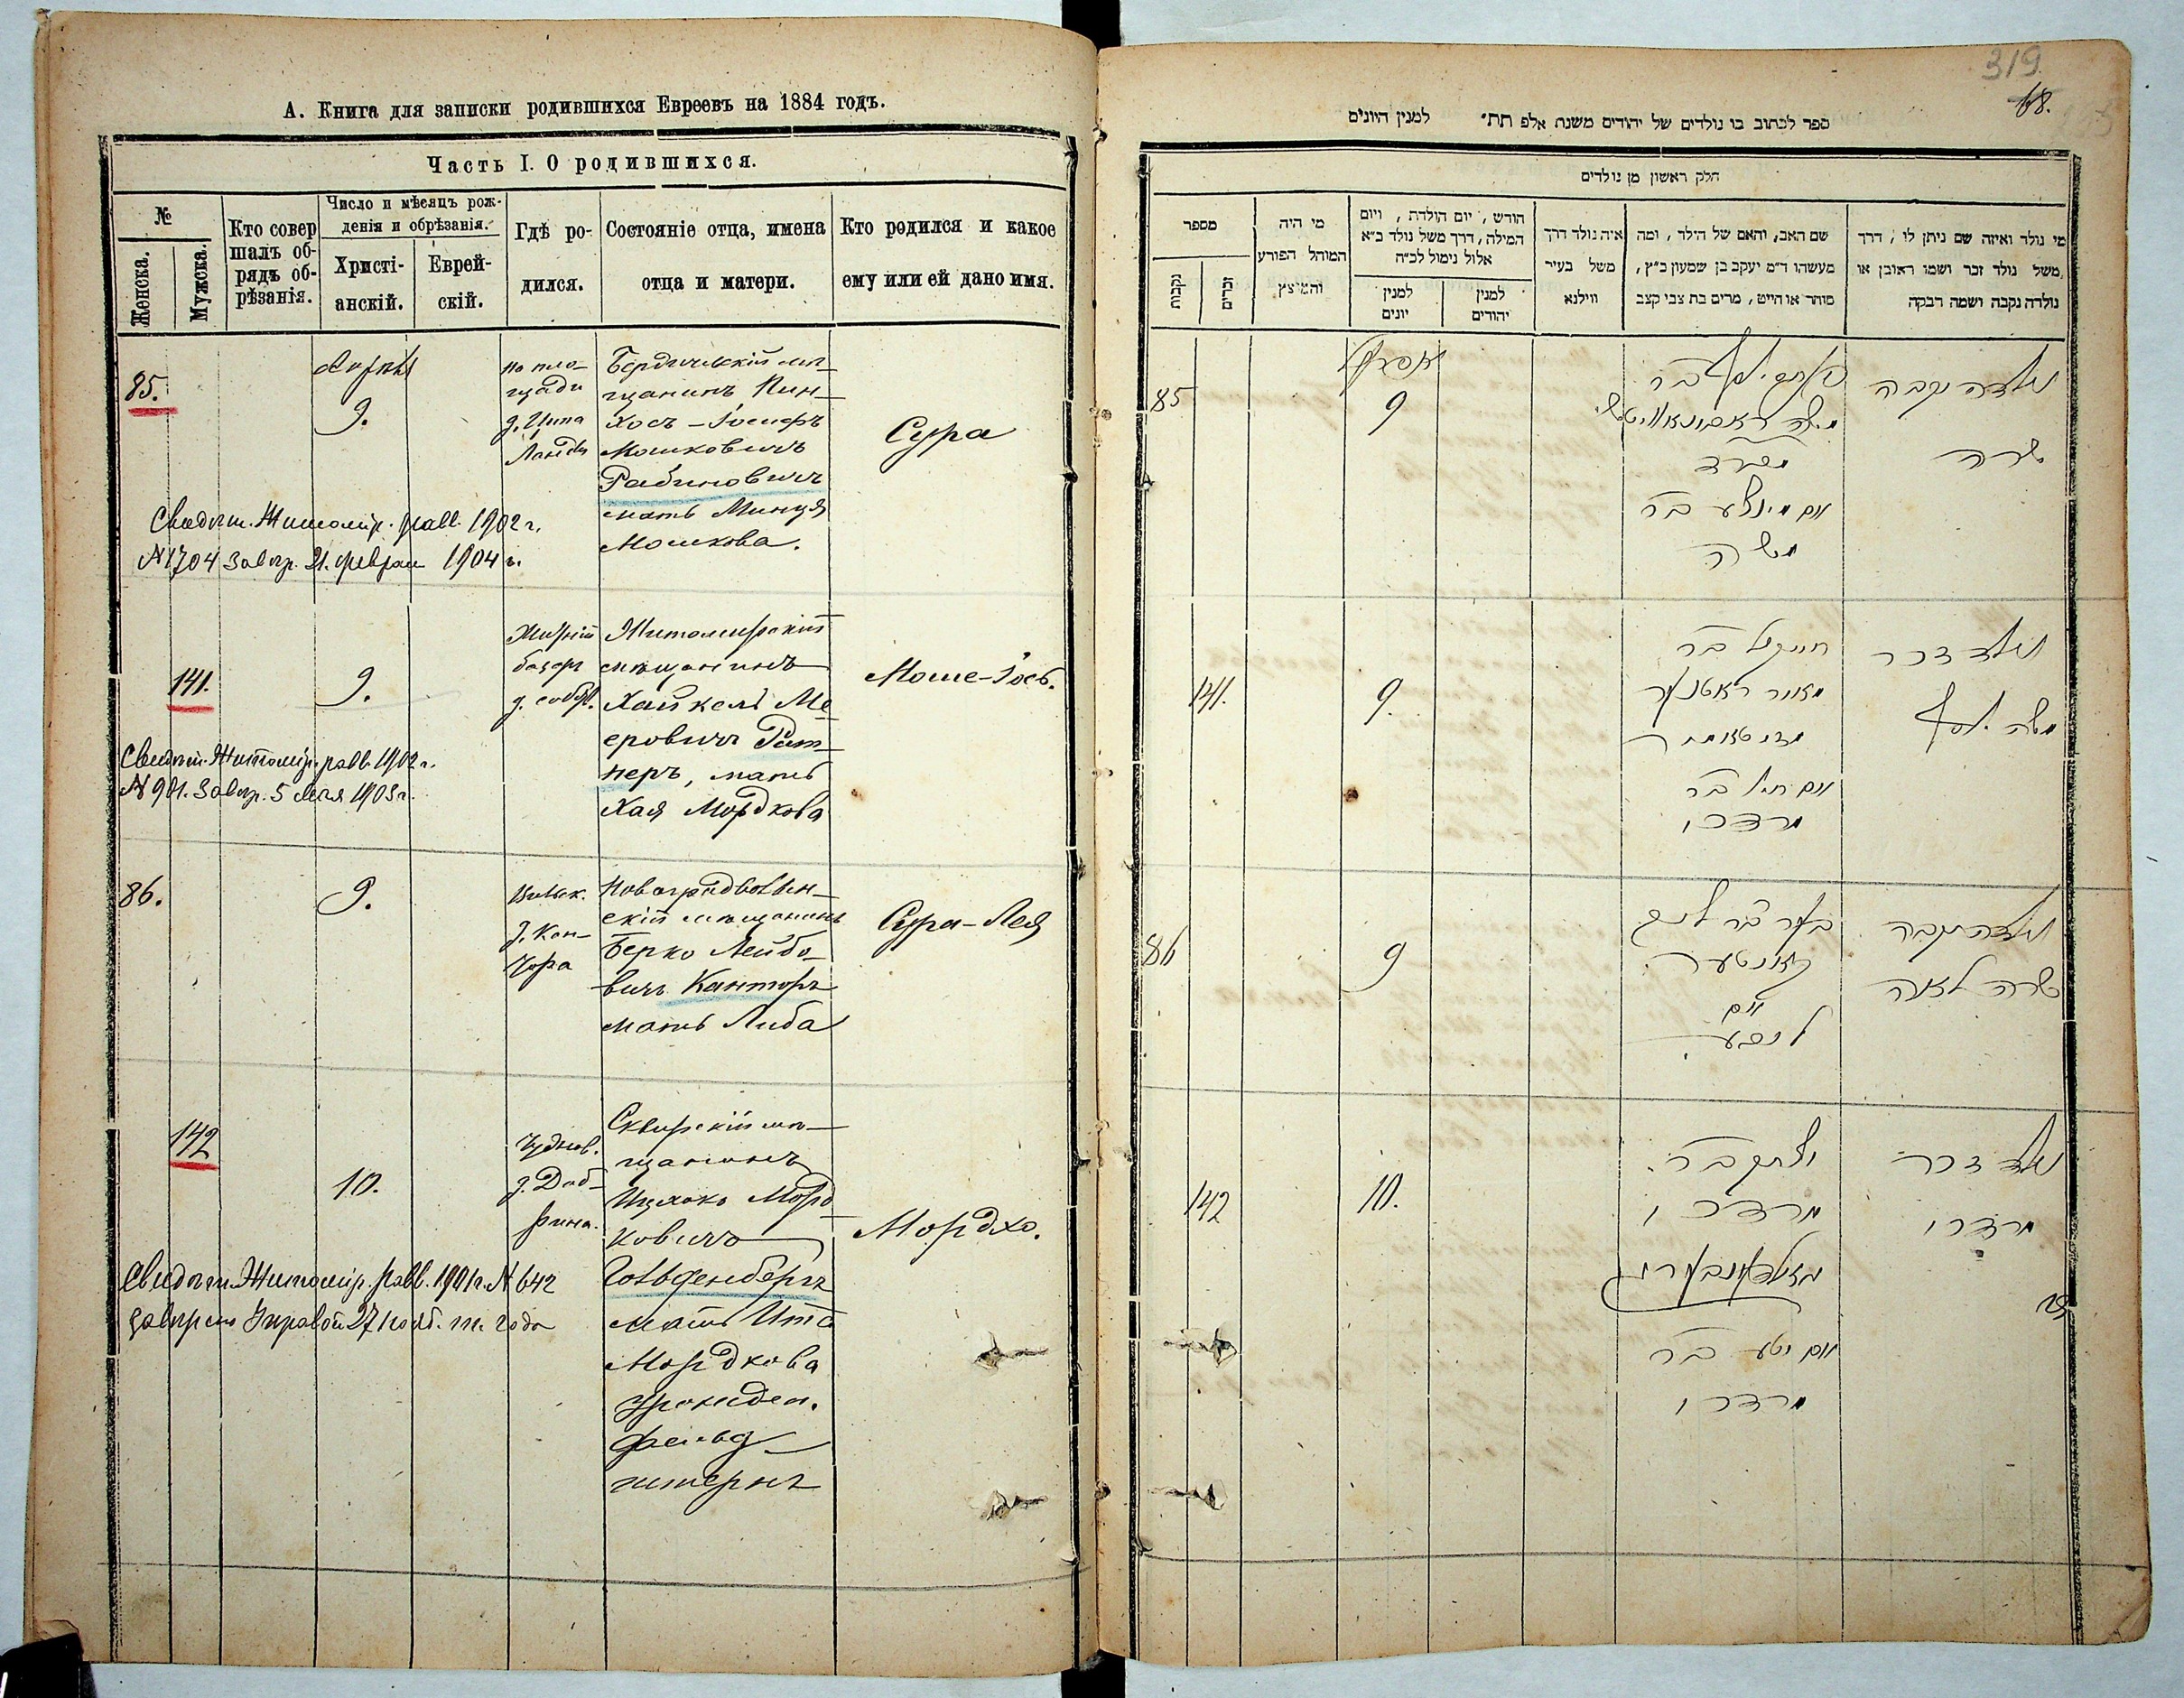 А. Книга для записки родившихся Евреевъ на 1884 годъ.
Часть I. О родившихся.
№
Женска.
Мужска.
Кто совер
шалъ об-
рядъ об-
рѣзанія.
Число и мѣсяцъ рож-
денія и обрѣзанія.
Христі-
анскій.
Еврей-
скій.
Гдѣ ро-
дился.
Состояніе отца, имена
отца и матери.
Кто родился и какое
ему или ей дано имя.
85.
9.
на пло-
щади
Бердичевскій мѣ-
щанинъ Пин-
хосъ-Іосифъ
Мошковичъ
Рабиновичъ
мать Минця
Мошкова.
Сура
Свидѣт. Житомір. равв. 1902 г.
№ 1704 завѣр. 21. феврал 1904 г.
141.
9.
базаръ
Житомирскій
мѣщанинъ
Хайкель Ме-
еровичъ
неръ, мать
Хая Мордкова
Моше-Іось.
Свидѣт. Житомір. равв. 1902 г.
завѣр. 5 мая 1903 г.
86.
9.
д. Кан-
Новоградволын-
скій мѣщанинъ
Берко Лейбо-
вичъ Канторъ
мать Либа
Сура-Лея
142
10.
Чуднов.
Сквирскій мѣ-
щанинъ
Ицхокъ Морд-
ковичъ
Гольденбергъ
мать Ита
Мордкова
урожден.
Фельд-
штернъ
Мордхо.
Свидѣт. Житомір. равв. 1901 г. № 642
завѣрено Управой 27 нояб. т. года
319
68.
ספר לכתוב בו נולדים של יהודים משנת אלפ תת״ למנין היונים
חלק ראשון מן נולדים
מספר
נקבות
זכרים
מי היה
המוהל הפורע
והמוצץ
חודש, יום הולדת, ויום
המילה, דרך משל נולד ב״א
אלול נימול לכ״ה
למנין
יונים
למנין
יהודים
איה נולד דרך
משל בעיר
ווילנא
שם האב, והאם של הילד, ומה
מעשהו ד״מ יעקב בן שמעון כ״ץ,
סוחר או הייט, מרים בת צבי קצב
מי נולד ואיזה שם ניתן לו, דרך
משל נולד זכר ושמו ראובן או
נולדה נקבה ושמה רבקה
85
9
משה
נולדה נקבה
שרה
141.
9.
חייקל בר
מאיר
מרדכי
נולד זכר
משה יוסף
86
9
נולדה נקבה
שרה לאה
142
10.
יצחק בר
מרדכי
ואם יטע בר
מרדכי
נולד זכר
מרדכי